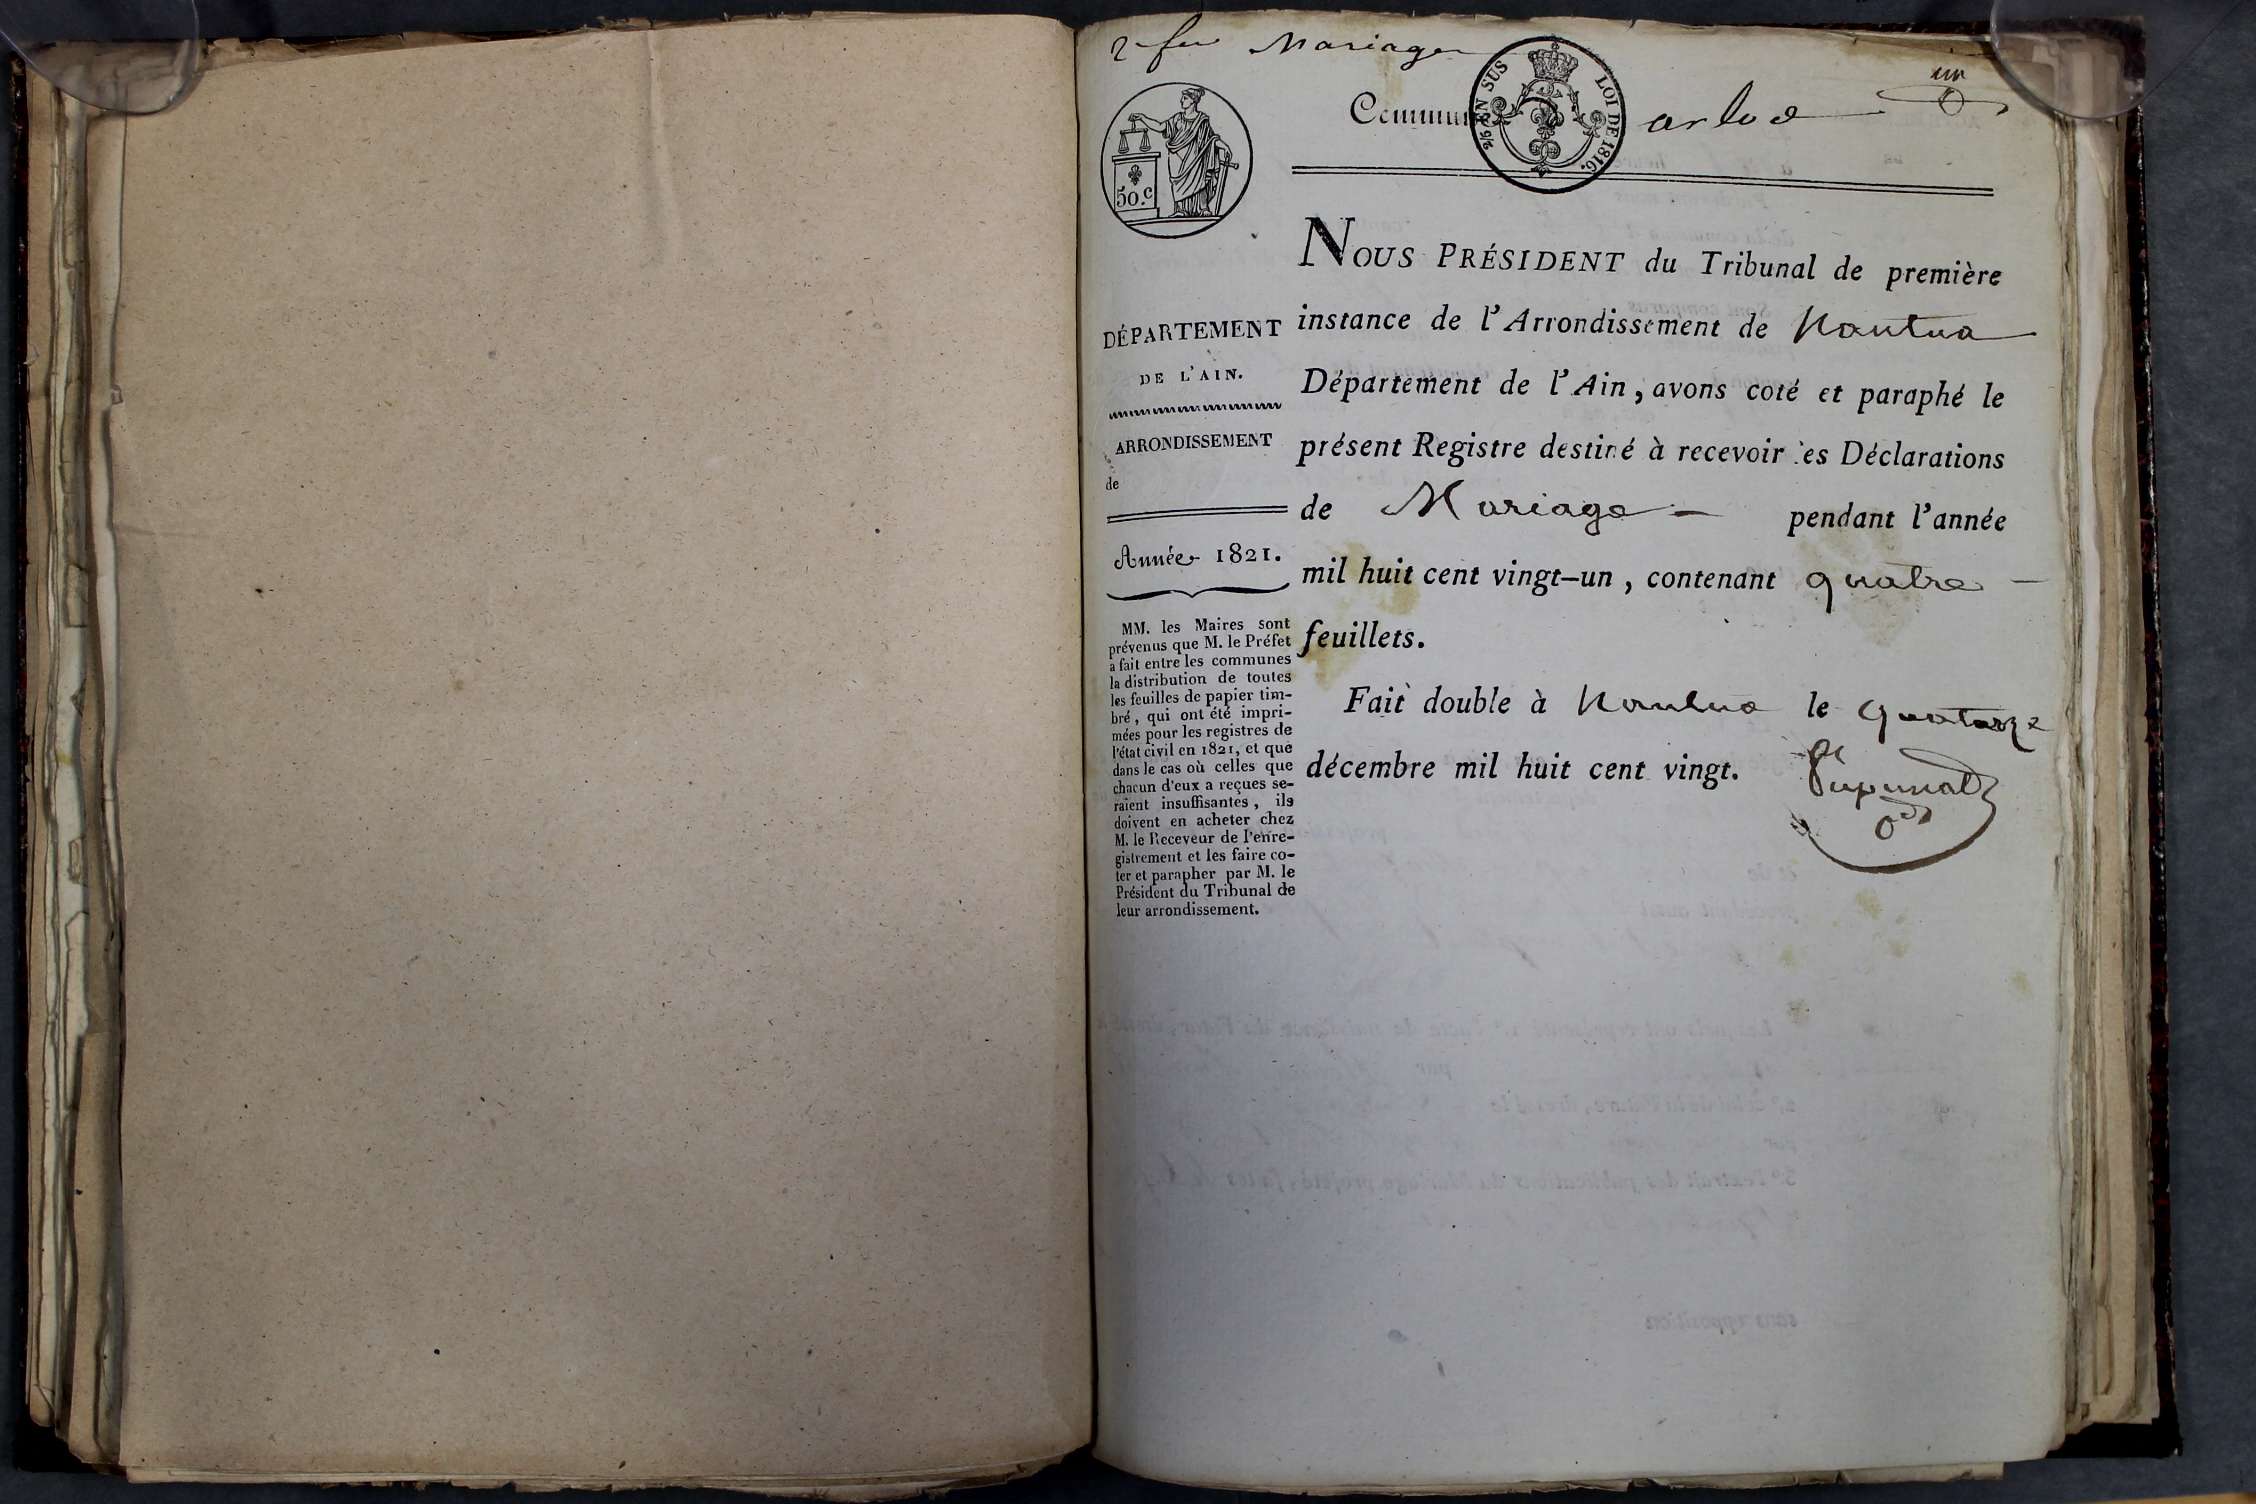 Mariage
un
Commune
arlod
2/5 EN SUS
LOI DE 1816.
50.c
NOUS PRÉSIDENT du Tribunal de première
instance de l'Arrondissement de Nantua
Département de l'Ain, avons coté et paraphé le
présent Registre destiné à recevoir les Déclarations
de Mariage — pendant l'année
mil huit cent vingt-un, contenant quatre —
feuillets.
Fait double à Nantua le quatorze
décembre mil huit cent vingt.
DÉPARTEMENT
DE L'AIN.
ARRONDISSEMENT
de
Année 1821.
MM. les Maires sont
prévenus que M. le Préfet
a fait entre les communes
la distribution de toutes
les feuilles de papier tim-
bré, qui ont été impri-
mées pour les registres de
l'état civil en 1821, et que
dans le cas où celles que
chacun d'eux a reçues se-
raient insuffisantes, ils
doivent en acheter chez
M. le Receveur de l'enre-
gistrement et les faire co-
ter et parapher par M. le
Président du Tribunal de
leur arrondissement.